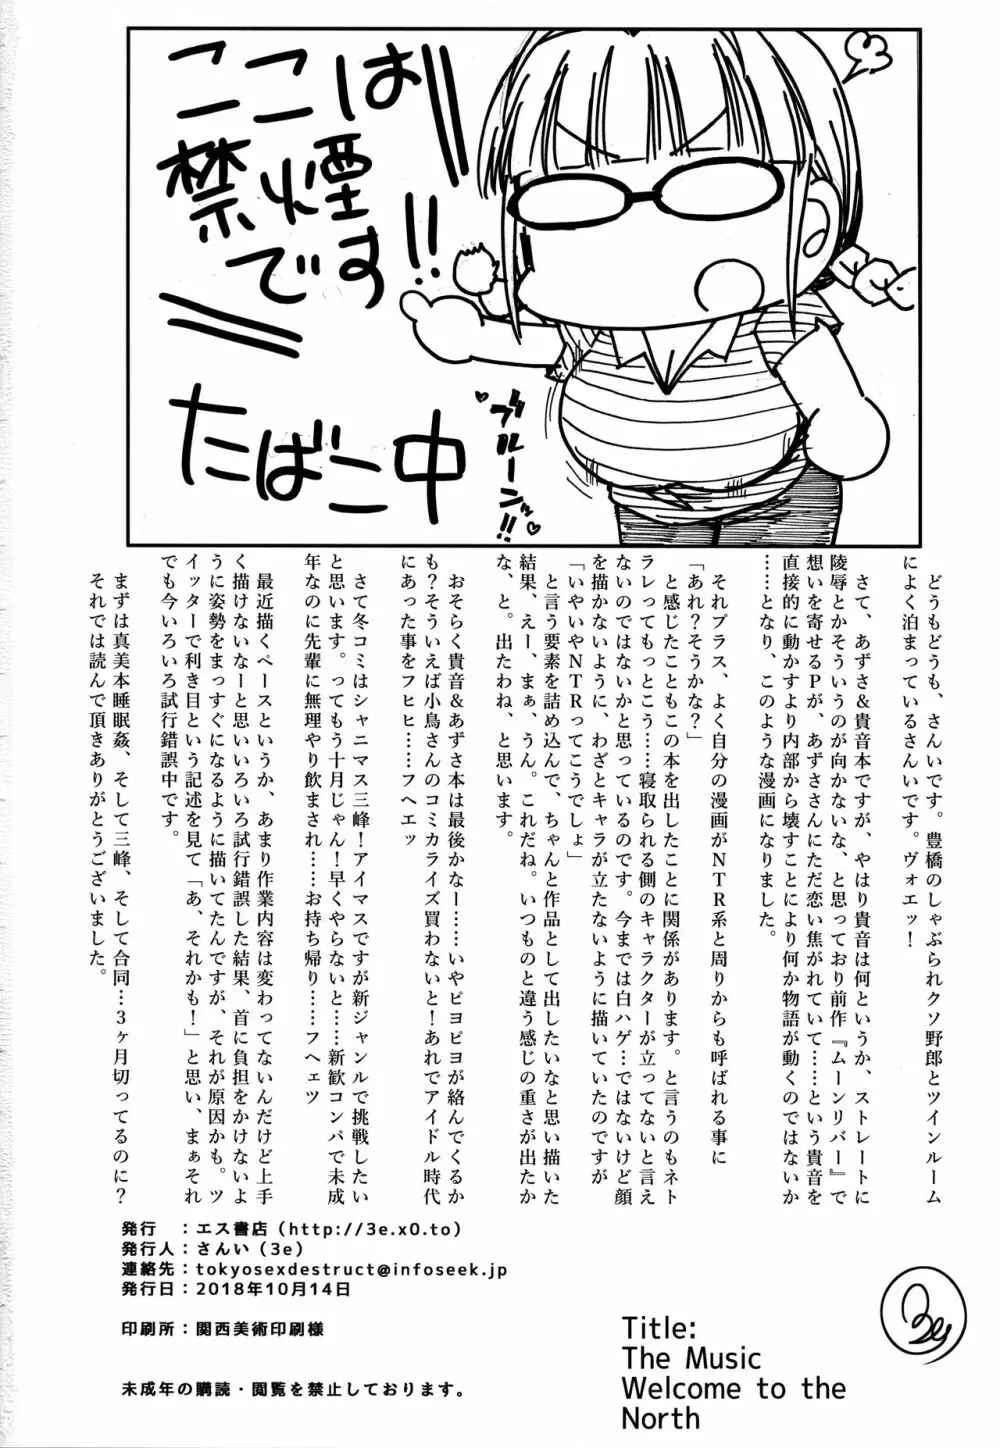 ここは
禁煙
です!!
たばこ中
ブルーンッ!!
どうもどうも、さんいです。豊橋のしゃぶられクソ野郎とツインルーム
によく泊まっているさんいです。ヴォエッ!
さて、あずさ&貴音本ですが、やはり貴音は何というか、ストレートに
陵辱とかそういうのが向かないな、と思っており前作『ムーンリバー』で
想いを寄せるPが、あずささんにただ恋い焦がれていて……という貴音を
直接的に動かすより内部から壊すことにより何か物語が動くのではないか
……となり、このような漫画になりました。
それプラス、よく自分の漫画がNTR系と周りからも呼ばれる事に
「あれ?そうかな?」
と感じたこともこの本を出したことに関係があります。と言うのもネト
ラレってもっとこう……寝取られる側のキャラクターが立ってないと言え
ないのではないかと思っているのです。今までは白ハゲ…ではないけど顔
を描かないように、わざとキャラが立たないように描いていたのですが
「いやいやNTRってこうでしょ」
と言う要素を詰め込んで、ちゃんと作品として出したいなと思い描いた
結果、えー、まぁ、うん。これだね。いつものと違う感じの重さが出たか
な、と。出たわね、と思います。
おそらく貴音&あずさ本は最後かなー……いやピヨピヨが絡んでくるか
も?そういえば小鳥さんのコミカライズ買わないと!あれでアイドル時代
にあった事をフヒヒ……フヘエッ
さて冬コミはシャニマス三峰!アイマスですが新ジャンルで挑戦したい
と思います。ってもう十月じゃん!早くやらないと……新歓コンパで未成
年なのに先輩に無理やり飲まされ……お持ち帰り……フヘェツ
最近描くペースというか、あまり作業内容は変わってないんだけど上手
く描けないなーと思いいろいろ試行錯誤した結果、首に負担をかけないよ
うに姿勢をまっすぐになるように描いてたんですが、それが原因かも。ツ
イッターで利き目という記述を見て「あ、それかも!」と思い、まぁそれ
でも今いろいろ試行錯誤中です。
まずは真美本睡眠姦、そして三峰、そして合同…3ヶ月切ってるのに?
それでは読んで頂きありがとうございました。
発行 :エス書店(http://3e.x0.to)
発行人:さんい(3e)
連絡先:tokyosexdestruct@infoseek.jp
発行日:2018年10月14日
印刷所:関西美術印刷様
未成年の購読・閲覧を禁止しております。
Title:
The Music
Welcome to the
North